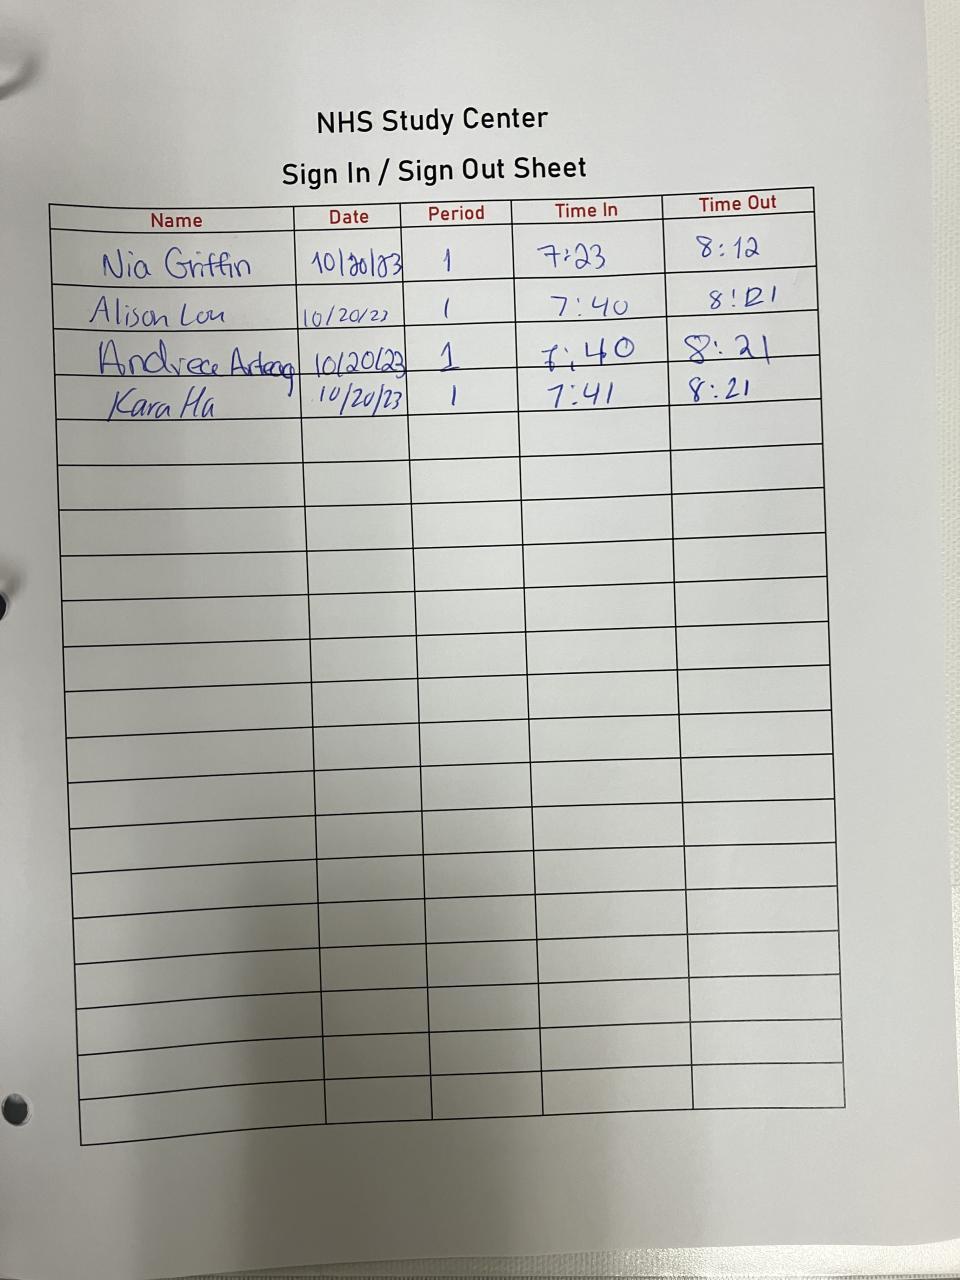 NHS Study Center
Sign In / Sign Out Sheet
Name Date Period Time In Time Out
Nia Griffin 10/20/23 1 7:23 8:12
Alison Lou 10/20/23 1 7:40 8:21
10/20/23 1 7:40 8:21
Kara Ha 10/20/23 1 7:41 8:21